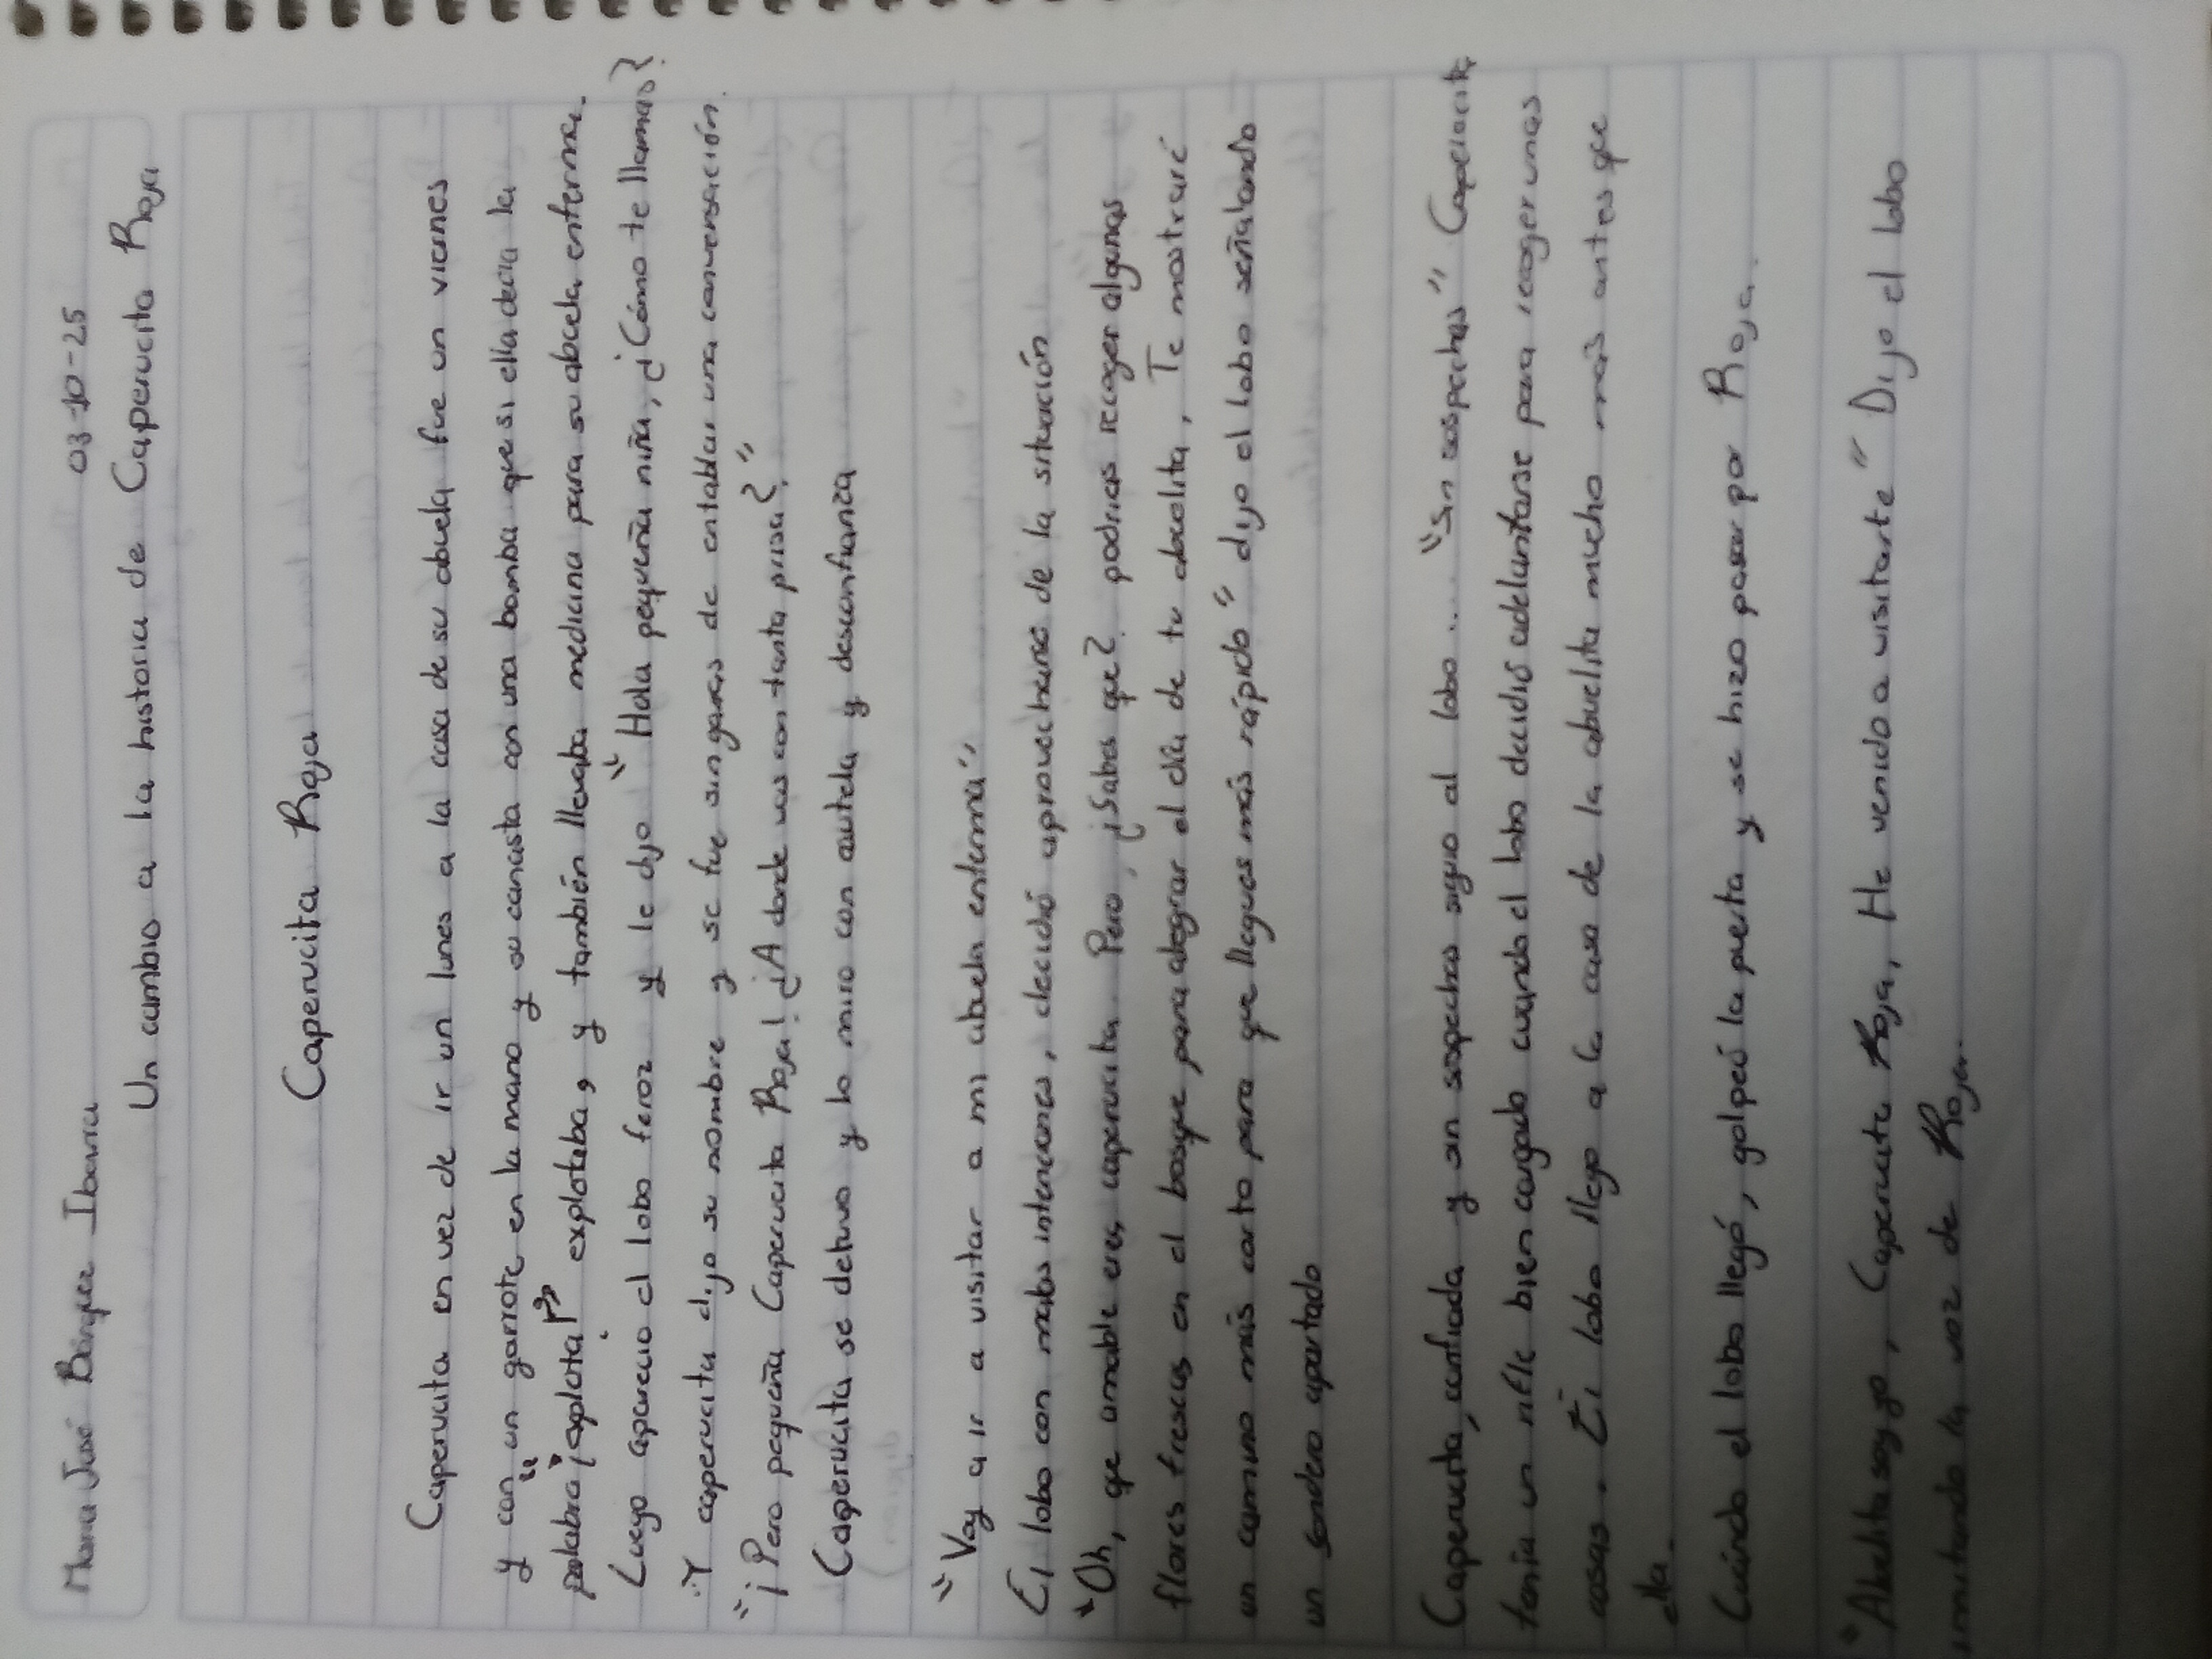 Maria José Bánquez Ibarra 03-10-25
Un cambio a la historia de Caperucita Roja
Caperucita Roja
Caperucita en vez de ir un lunes a la casa de su abuela fue un viernes
y con un garrote en la mano y su canasta con una bomba que si ella decia la
palabra "¡explota!" explotaba, y también llevaba medicina para su abuela enferma.
Luego aparecio el lobo feroz y le dijo "Hola pequeña niña, ¿Cómo te llamas?
Y caperucita dijo su nombre y se fue sin ganas de entablar una conversación.
"¡Pero pequeña Caperucita Roja! ¿A donde vas con tanta prisa?"
Caperucita se detuvo y lo miro con cautela y desconfianza
"Voy a ir a visitar a mi abuela enferma"
El lobo con malas intenciones, decidió aprovecharse de la situación
"Oh, que amable eres caperucita. Pero, ¿Sabes que? podrias recoger algunas
flores frescas en el bosque para alegrar el día de tu abuelita, Te mostraré
un camino más corto para que llegues más rápido" dijo el lobo señalando
un sendero apartado
Caperucita, confiada y sin sospechas siguio al lobo... "Sin sospechas" Caperucita
tenia un rifle bien cargado cuando el lobo decidió adelantarse para recoger unas
cosas. El lobo llego a la casa de la abuelita mucho más antes que
ella.
Cuándo el lobo llegó, golpeó la puerta y se hizo pasar por Roja.
"Abuelita soy yo, Caperucita Roja, He venido a visitarte" Dijo el lobo
imitando la voz de Roja.